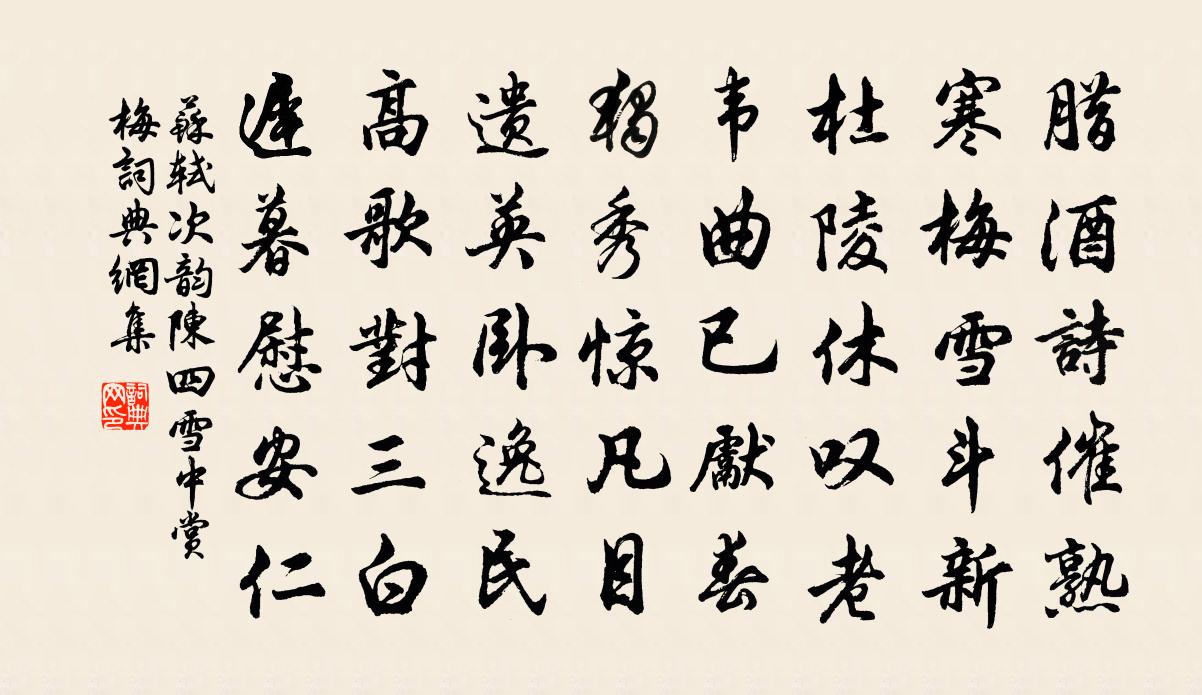 腊酒詩催熟
寒梅雪斗新
杜陵休叹老
韦曲已獻春
独秀惊凡目
遗英卧逸民
高歌對三白
遲暮慰安仁
蘇轼次韵陳四雪中賞
梅詞典網集
詞典网印